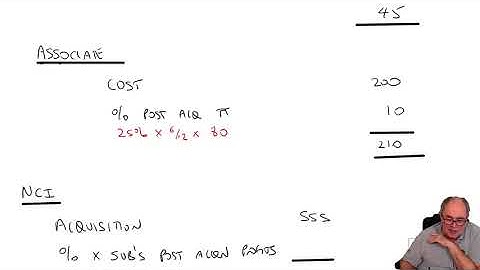 45
ASSOCIATE
COST 200
% POST ACQ π 10
25% x 6/12 x 80
210
NCI
ACQUISITION SSS
% x SUB'S POST ACQN PROFITS